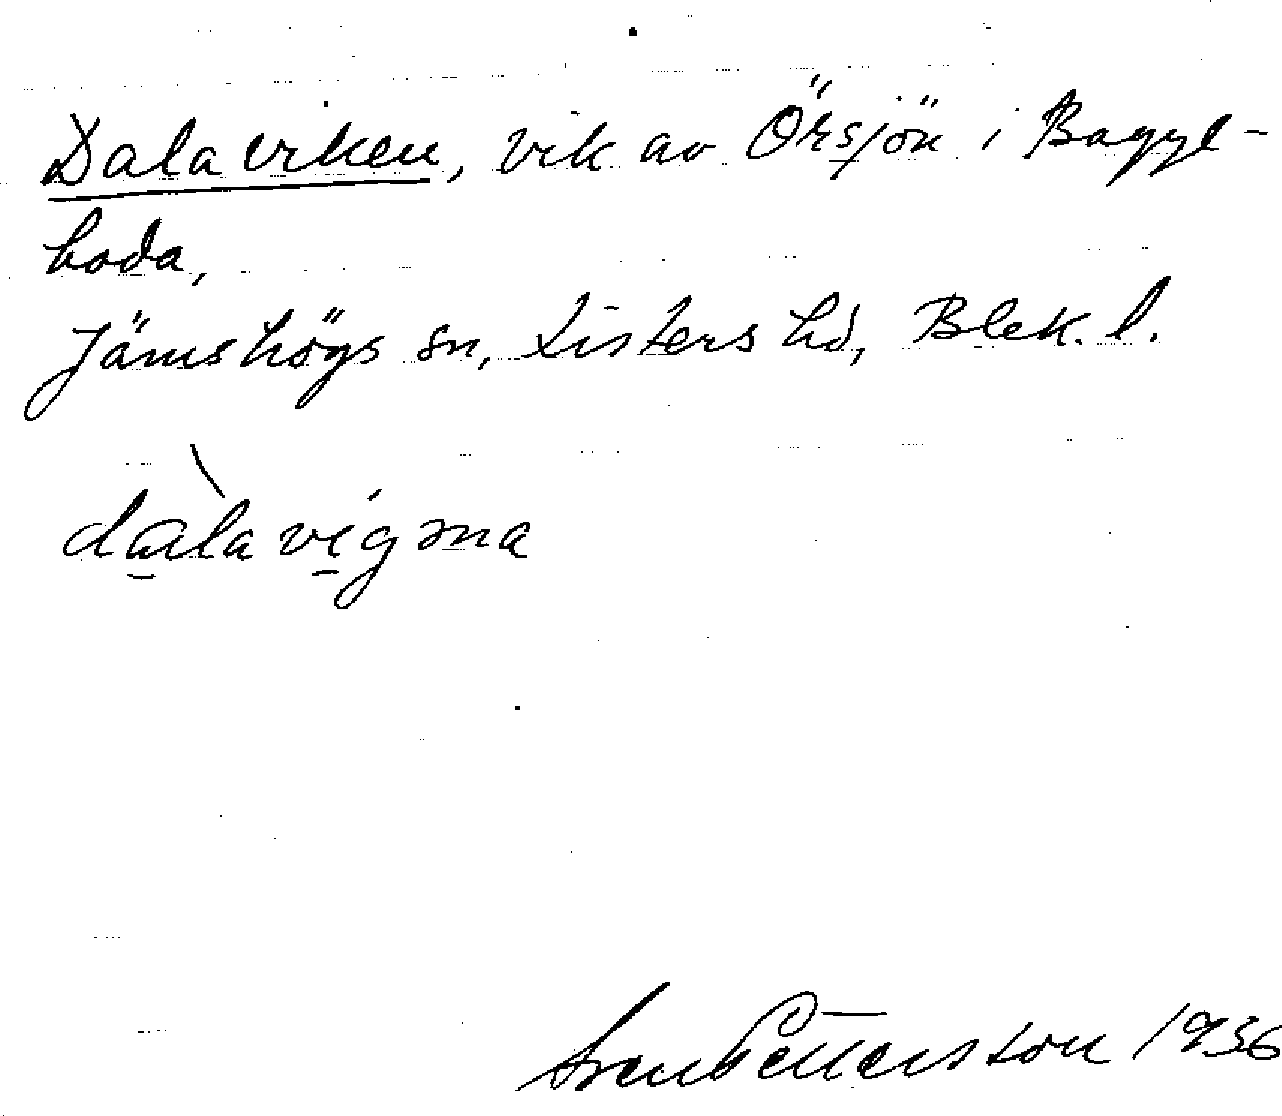 Dalaviken, vik av Örsjön i Bagyl-
boda,
Jämshögs sn, Listers hd, Blek. l.
dalavigəna
Sven Pettersson 1936